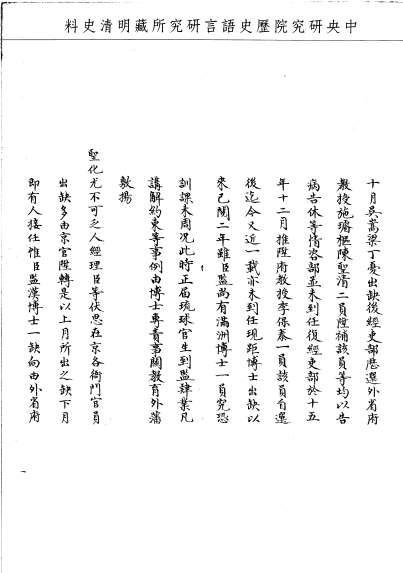 中央研究院歷史語言研究所藏明清史料
十月吳嵩梁丁憂出缺後經吏部歷選外省府
教授施璠樞陳聖清二員陞補該員等均以告
病告休等情咨部並未到任復經吏部於十五
年十二月推陞府教授李保泰一員該員自選
後迄今又近一載亦未到任現距博士出缺以
來已閱二年雖臣監尚有滿洲博士一員究恐
訓課未周況此時正屆琉球官生到監肄業凡
講解約束等事例由博士專責事關教育外藩
敷揚
聖化尤不可乏人經理臣等伏思在京各衙門官員
出缺多由京官陞轉是以上月所出之缺下月
即有人接任惟臣監漢博士一缺向由外省府